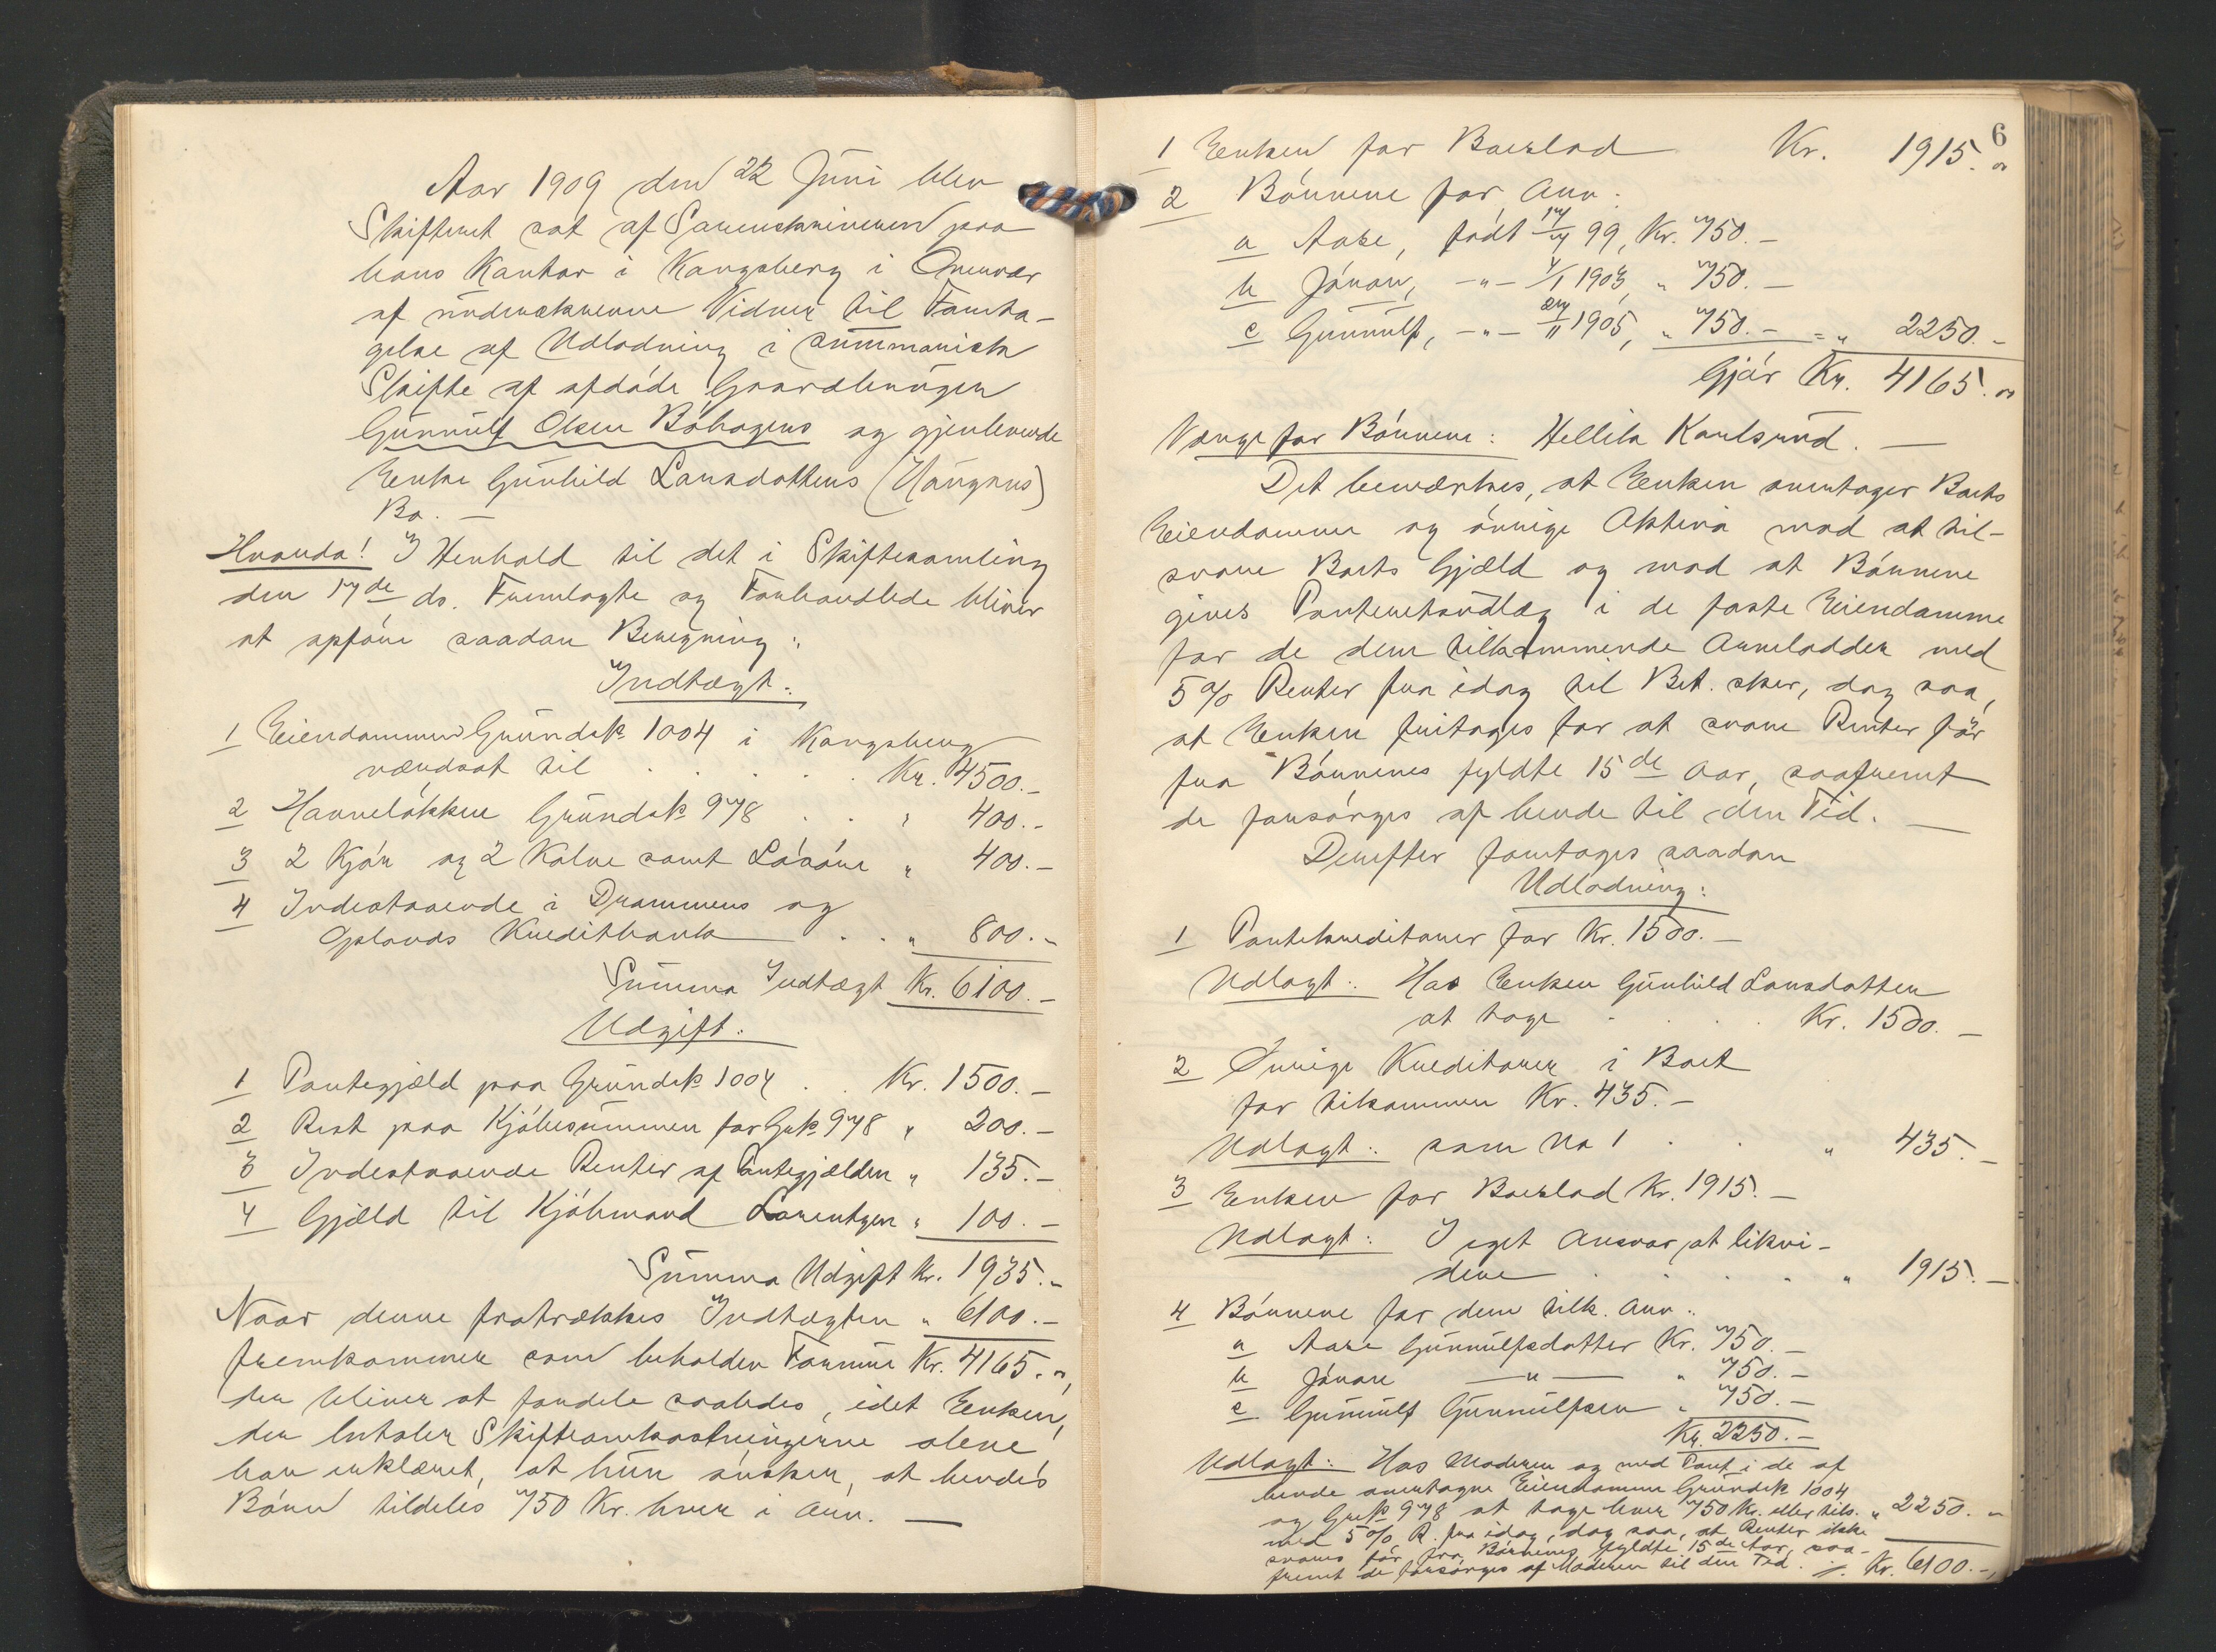 Aar 1909 den 22 Juni blev
Skifteret sat af Sorenskriveren paa
hans Kontor i Kongsberg i Overvær
af undertegnende Vidner til Foreta-
gelse af Udlodning i summarisk
Skifte af afdøde Gaardbruger
Gunnulf Olsen Bøhagens og gjenlevende
Enke Gunhild Larsdatters (Haugens)
Bo. –
Hvorda! I Henhold til det i Skiftesamling
den 17de ds. Fremlagte og Forhandlede bliver
at opføre saadan Beregning:
Indtægt:
1 Eiendommen Grundsk. 1004 i Kongsberg
værdsat til . . . . . Kr. 4500.–
2 Havneløkken Grundsk. 978 . . " 400.–
3 2 Kjør og 2 Kalve samt Løsøre " 400.–
4 Indestaaende i Drammens og
Oplands Kreditbank . . " 800.–
Summa Indtægt Kr. 6100.–
Udgift:
1 Pantegjæld paa Grundsk. 1004 . . Kr. 1500.–
2 Rest paa Kjøbesummen for Grsk. 978 " 200.–
3 Indestaaende Renter af Pantegjælden " 135.–
4 Gjæld til Kjøbmand Lorentzen " 100.–
Summa Udgift Kr. 1935.–
Naar denne fratrækkes Indtægten " 6100.–
fremkommer som beholden Formue Kr. 4165.–,
der bliver at fordele saaledes, idet Enken,
der betaler Skifteomkostningerne alene
har erklæret, at hun ønsker, at hendes
Børn tildeles 750 Kr. hver i Arv. –
6
1 Enken for Boeslod Kr. 1915.–
2 Børnene for Arv:
a Aase, født 17/7 99, Kr. 750.–
b Jøran, –"– 4/1 1903, " 750.–
c Gunnulf, –"– 27/11 1905, " 750.– = " 2250.–
Gjør Kr. 4165.–
Værge for Børnene: Hellik Karlsrud. –
Det bemærkes, at Enken overtager Boets
Eiendomme og øvrige Aktiva mod at til-
svare Boets Gjæld og mod at Børnene
gives Panteretsudlæg i de faste Eiendomme
for de dem tilkommende Arvelodder med
5 % Renter fra idag til Bet. sker, dog saa,
at Enken fritages for at svare Renter før
fra Børnenes fyldte 15de Aar, saafremt
de forsørges af hende til den Tid. –
Derefter foretages saadan
Udlodning:
1 Pantekreditorer for Kr. 1500.–
Udlagt: Hos Enken Gunhild Larsdatter
at tage . . . . Kr. 1500.–
2 Øvrige Kreditorer i Boet
for tilsammen Kr. 435.–
Udlagt: som No 1 . . " 435.–
3 Enken for Boeslod Kr. 1915.–
Udlagt: I eget Ansvar at likvi-
dere . . . . . " 1915.–
4 Børnene for dem tilk. Arv:
a Aase Gunnulfsdatter Kr. 750.–
b Jøran –"– " 750.–
c Gunnulf Gunnulfsen " 750.–
Kr. 2250.–
Udlagt: Hos Moderen og med Pant i de af
hende overtagne Eiendomme Grundsk. 1004
og Grsk 978 at tage hver 750 Kr. eller tils. " 2250.–
med 5 % R. fra idag, dog saa, at Renter ikke
svares før fra Børnenes fyldte 15de Aar, saa-
fremt de forsørges af Moderen til den Tid. ./. Kr. 6100.–,